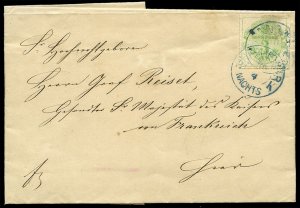 Sr. Hochwohlgeboren
Herrn Graf Reiset,
Gesandter Sr. Majestät des Kaisers
von Frankreich
Hier
NACHTS